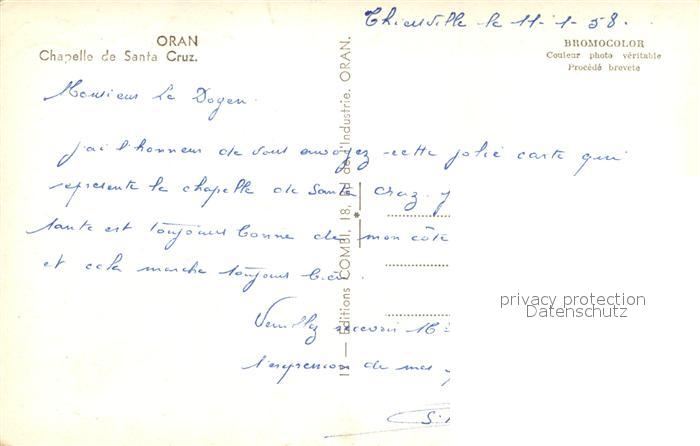 Thionville le 11-1-58.
ORAN
Chapelle de Santa Cruz.
BROMOCOLOR
Couleur photo véritable
Procédé breveté
Monsieur Le Doyen.
j'ai l'honneur de vous envoyez cette jolie carte qui
represente la chapelle de Santa Cruz.
sante est toujours bonne de mon côte
et cela marche toujours bien.
Veuillez recevoir
l'expression de mes
11 — Editions COMBI, 18, de l'Industrie. ORAN.
privacy protection
Datenschutz